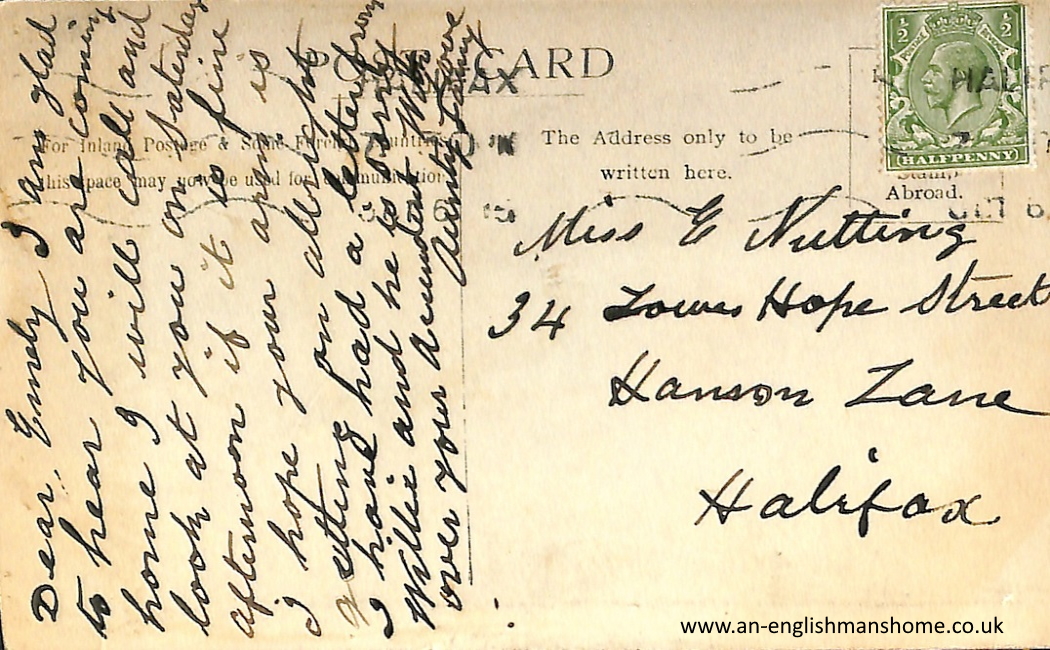 POST CARD
For Inland Postage & Some Foreign Countries
this space may now be used for communication
The Address only to be
written here.
1/2 1/2
POSTAGE REVENUE
HALFPENNY
Stamp,
Abroad.
HALIFAX
OCT 6
Dear Emely I am glad
to hear you are coming
home I will call and
look at you on Saturday
afternoon if it is fine
I hope your arm is
setting on allright
I have had a letter from
Willie and he is sorry
over your accident With love
Aunty
Miss E Nutting
34 Lower Hope Street
Hanson Lane
Halifax
www.an-englishmanshome.co.uk